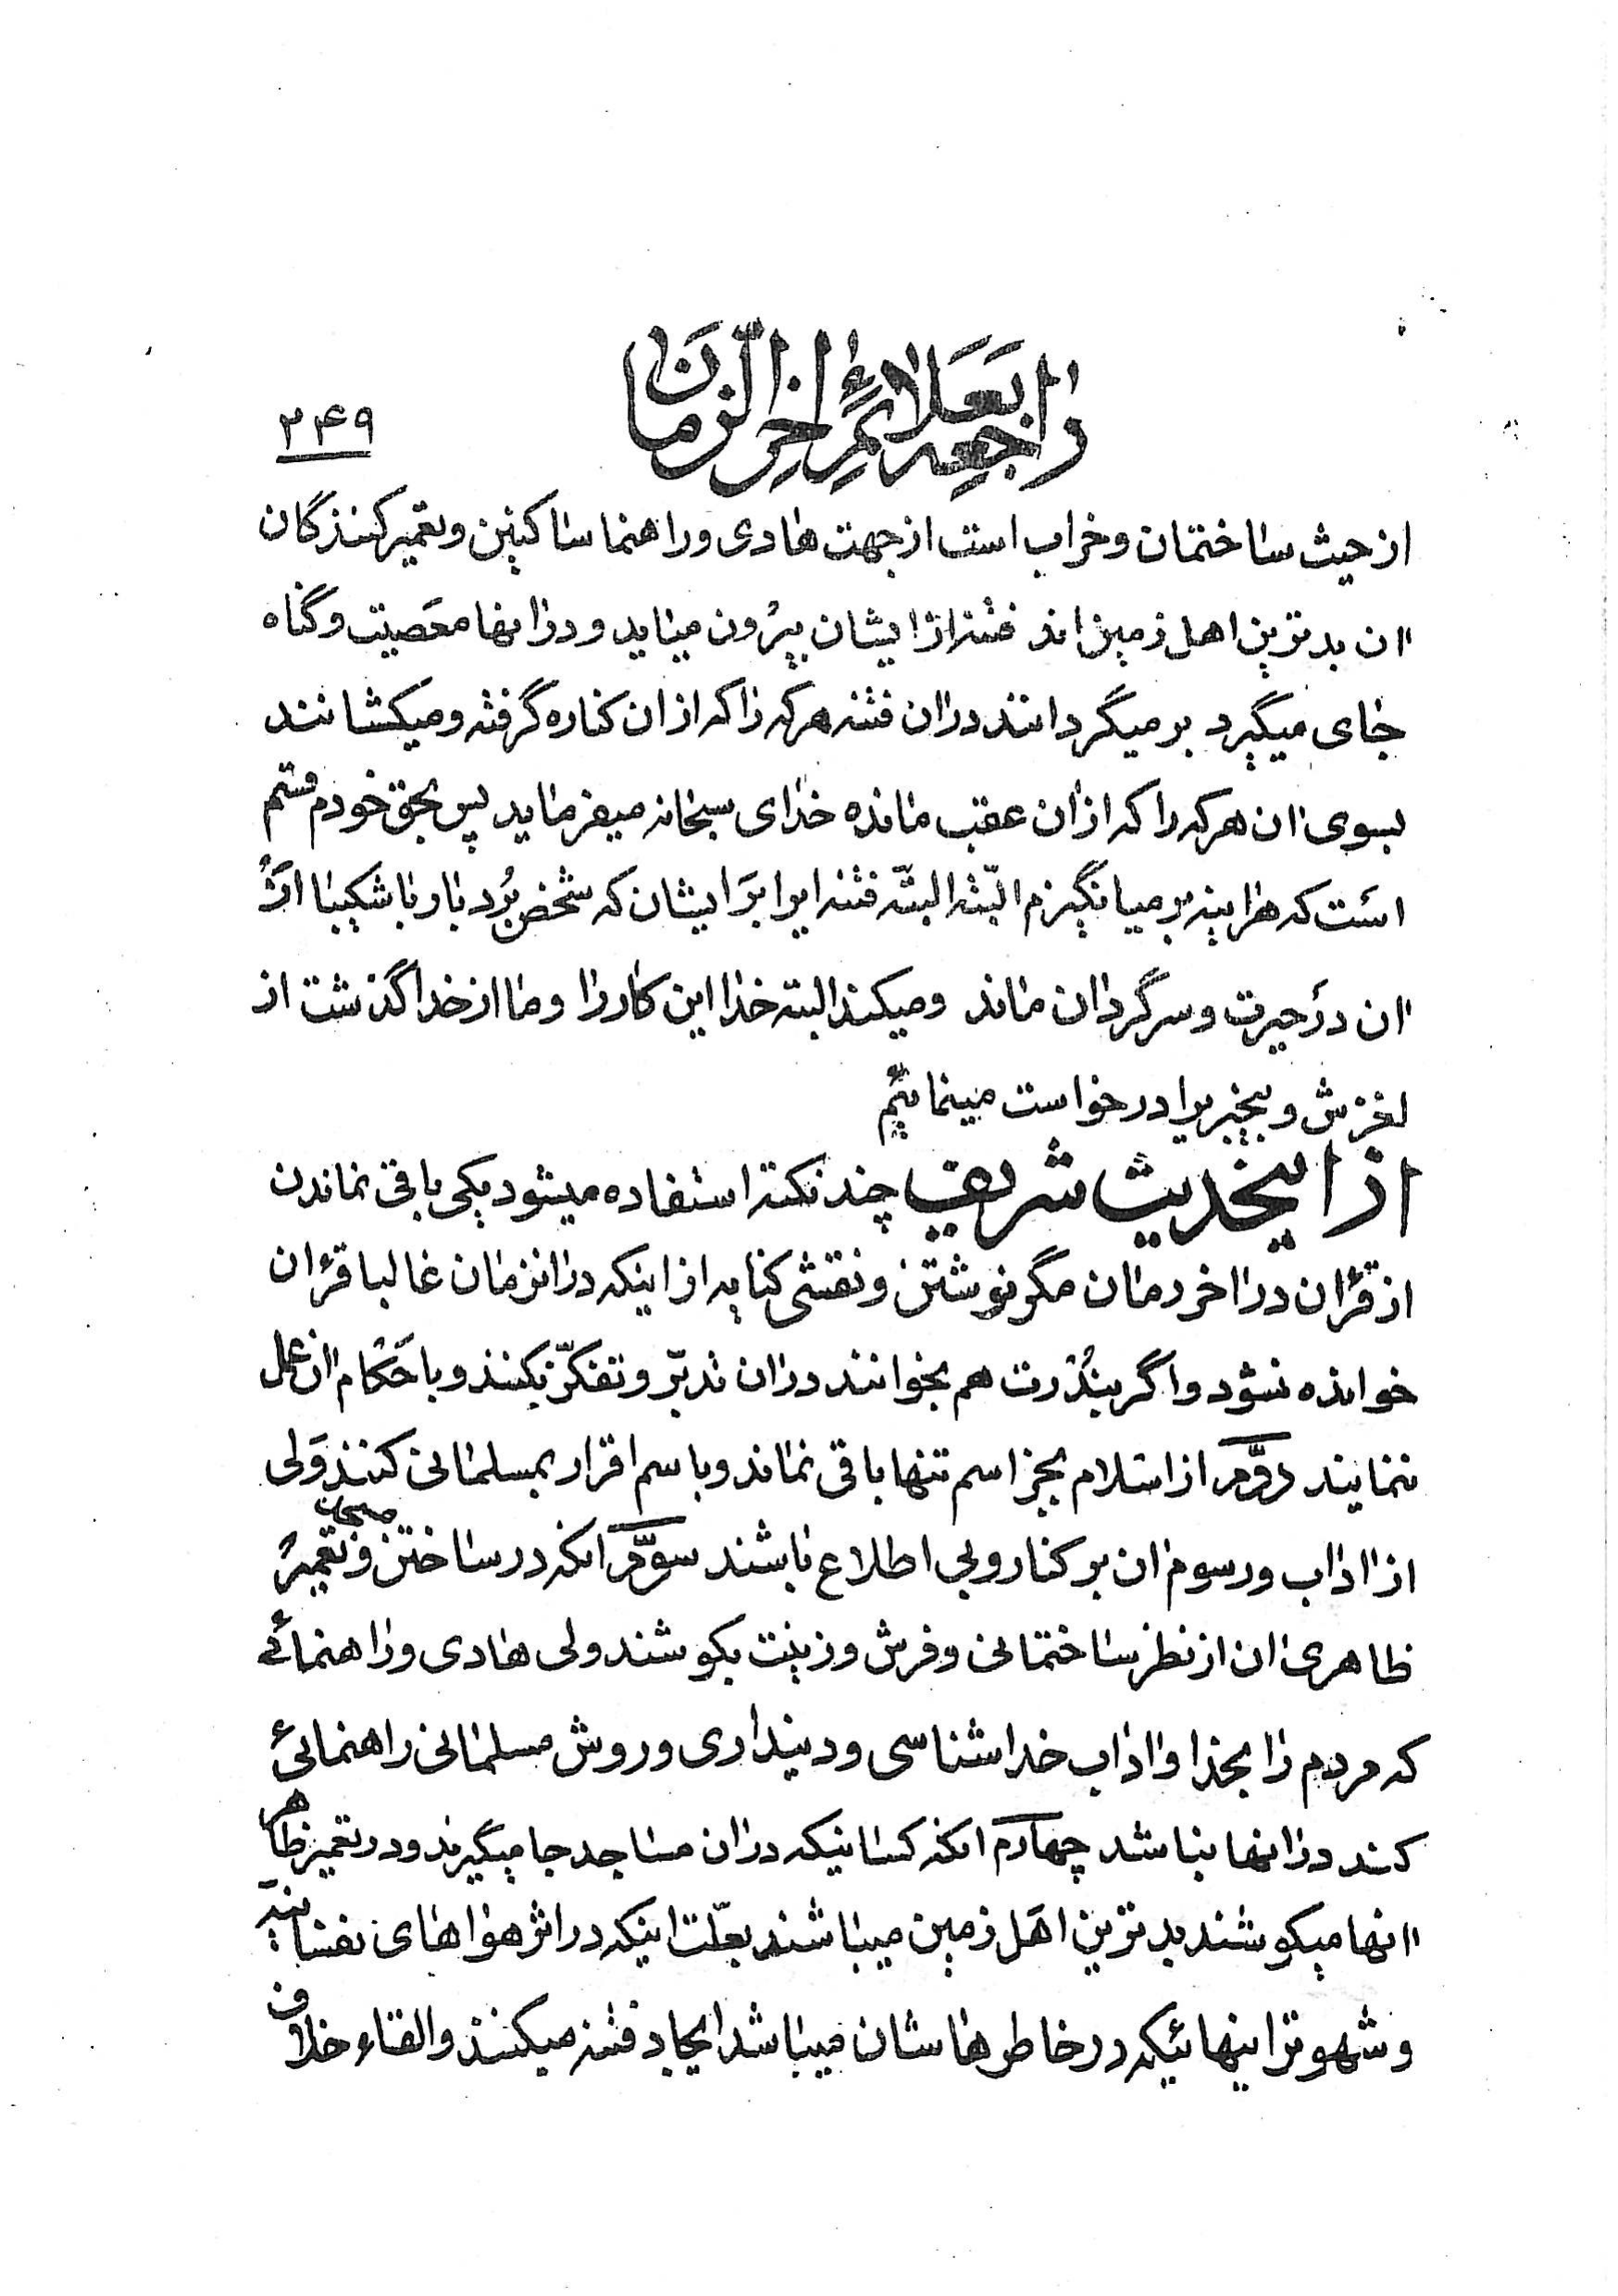 راجعه بعلائم اخر الزمان
۲۴۹
از حیث ساختمان و خراب است از جهت هادی و راهنما ساکنین و تعمیر کنندگان
آن بدترین اهل زمین اند فتنه از ایشان بیرون میاید و در آنها معصیت و گناه
جای میگیرد برمیگردانند در آن فتنه هر که را که از آن کناره گرفته و میکشانند
بسوی آن هر که را که از آن عقب مانده خدای سبحانه میفرماید پس بحق خودم قسم
است که هراینه برمیانگیزم البته البته فتنه ایرا بر ایشان که شخص بردبار با شکیبا از
آن در حیرت و سرگردان ماند و میکند البته خدا این کار را و ما از خدا گذشت از
لغزش و بیخبریرا درخواست مینمائیم
از اینحدیث شریف چند نکته استفاده میشود یکی باقی نماندن
از قرآن در آخر زمان مگر نوشتن و نقشی کنایه از اینکه در آنزمان غالبا قرآن
خوانده نشود و اگر بندرت هم بخوانند در آن تدبّر و تفکّر نکنند و باحکام آن عمل
ننمایند دوّم از اسلام بجز اسم تنها باقی نماند و باسم اقرار بمسلمانی کنند ولی
از آداب و رسوم آن برکنار و بی اطلاع باشند سوّم آنکه در ساختن و تعمیر مسجدهای
ظاهری آن از نظر ساختمانی و فرش و زینت بکوشند ولی هادی و راهنمائی
که مردم را بخدا و آداب خداشناسی و دینداری و روش مسلمانی راهنمائی
کند در آنها نباشد چهارم آنکه کسانیکه در آن مساجد جا میگیرند و در تعمیر ظاهر
آنها میکوشند بدترین اهل زمین میباشند بعلّت اینکه در اثر هواهای نفسانیه
و شهوترانیهائیکه در خاطرهاشان میباشد ایجاد فتنه میکنند و القاء خلاف